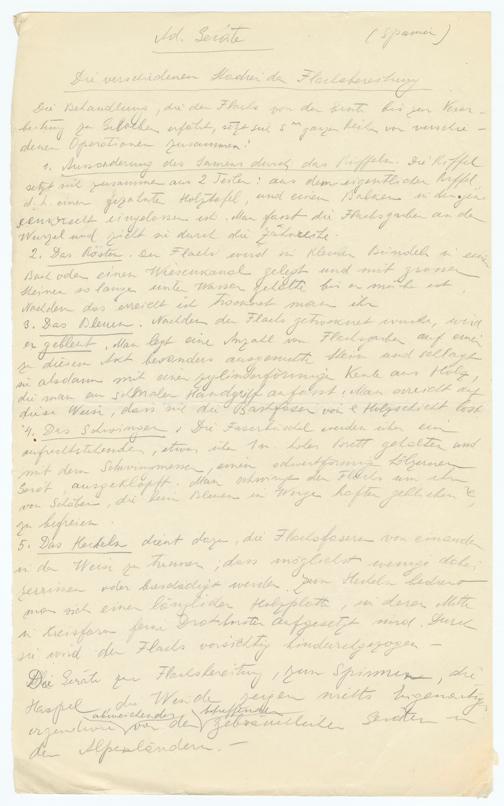 Ad. Geräte (Spamer)
Die verschiedenen Stadien der Flachsbereitung
Die Behandlung, die der Flachs von der Ernte bis zur Verar-
beitung zu erfährt, setzt sich ganzen Reihe von verschie-
denen Operationen zusammen:
1. Aussonderung des Samens durch das Riffeln. Die Riffel
setzt sich zusammen aus 2 Teilen: aus dem eigentlichen Riffel,
d. h. einer gezahnte Holztafel, und einem Balken in den jene
senkrecht eingelassen ist. Man fasst die Flachsgarben an der
Wurzel und zieht sie durch die
2. Das Rösten. Der Flachs wird in kleinen Bündeln in einen
Bach oder einen Wiesenkanal gelegt und mit grossen
Steinen so lange unter Wasser gehalten bis er ist
Nachdem das erreicht ist trocknet man ihn
3. Das Bleuen. Nachdem der Flachs getrocknet wurde, wird
er gebleut. Man legt eine Anzahl von Flachsgarben auf einen
zu diesem Akt besonders Stein und schlägt
sie alsdann mit einer zylinderförmigen Keule aus Holz,
die man am schmalen Handgriff anfasst. Man erreicht auf
diese Weise, dass sich die Bastfaser von d Holzschicht löst
4. Das Schwingen: Die Faserbüschel werden über ein
aufrechtstehendes, etwas über 1m hohes Brett gehalten und
mit dem Schwingmesser, einem schwertförmig hölzernen
Gerät, ausgeklopft. Man schwingt den Flachs um ihn
von Schäben, die beim Bleuen in Wergo haften geblieben,
zu befreien.
5. Das Hecheln dient dazu, die Flachsfasern von einander
in der Weise zu trennen, dass möglichst wenige dabei
zerrissen oder beschädigt werden. Zum Hecheln bedient
man sich einer länglichen Holzplatte, in deren Mitte
in Kreisform feine Drahtborsten aufgesetzt sind. Durch
sie wird der Flachs vorsichtig hindurchgezogen —
Die Geräte zur Flachsbereitung, zum Spinnen, die
Haspel, die Winde zeigen nichts Eigenartig,
irgendwie abweichendes von den betreffenden gebräuchlichen Geräten in
den Alpenländern. —